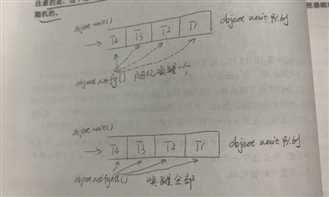 注意的是，
随机的。
object.wait()
T4 T3 T2 T1 object wait 队列
object.notify() 随机唤醒一个
object.wait()
T4 T3 T2 T1 object wait 队列
object.notifyAll() 唤醒全部